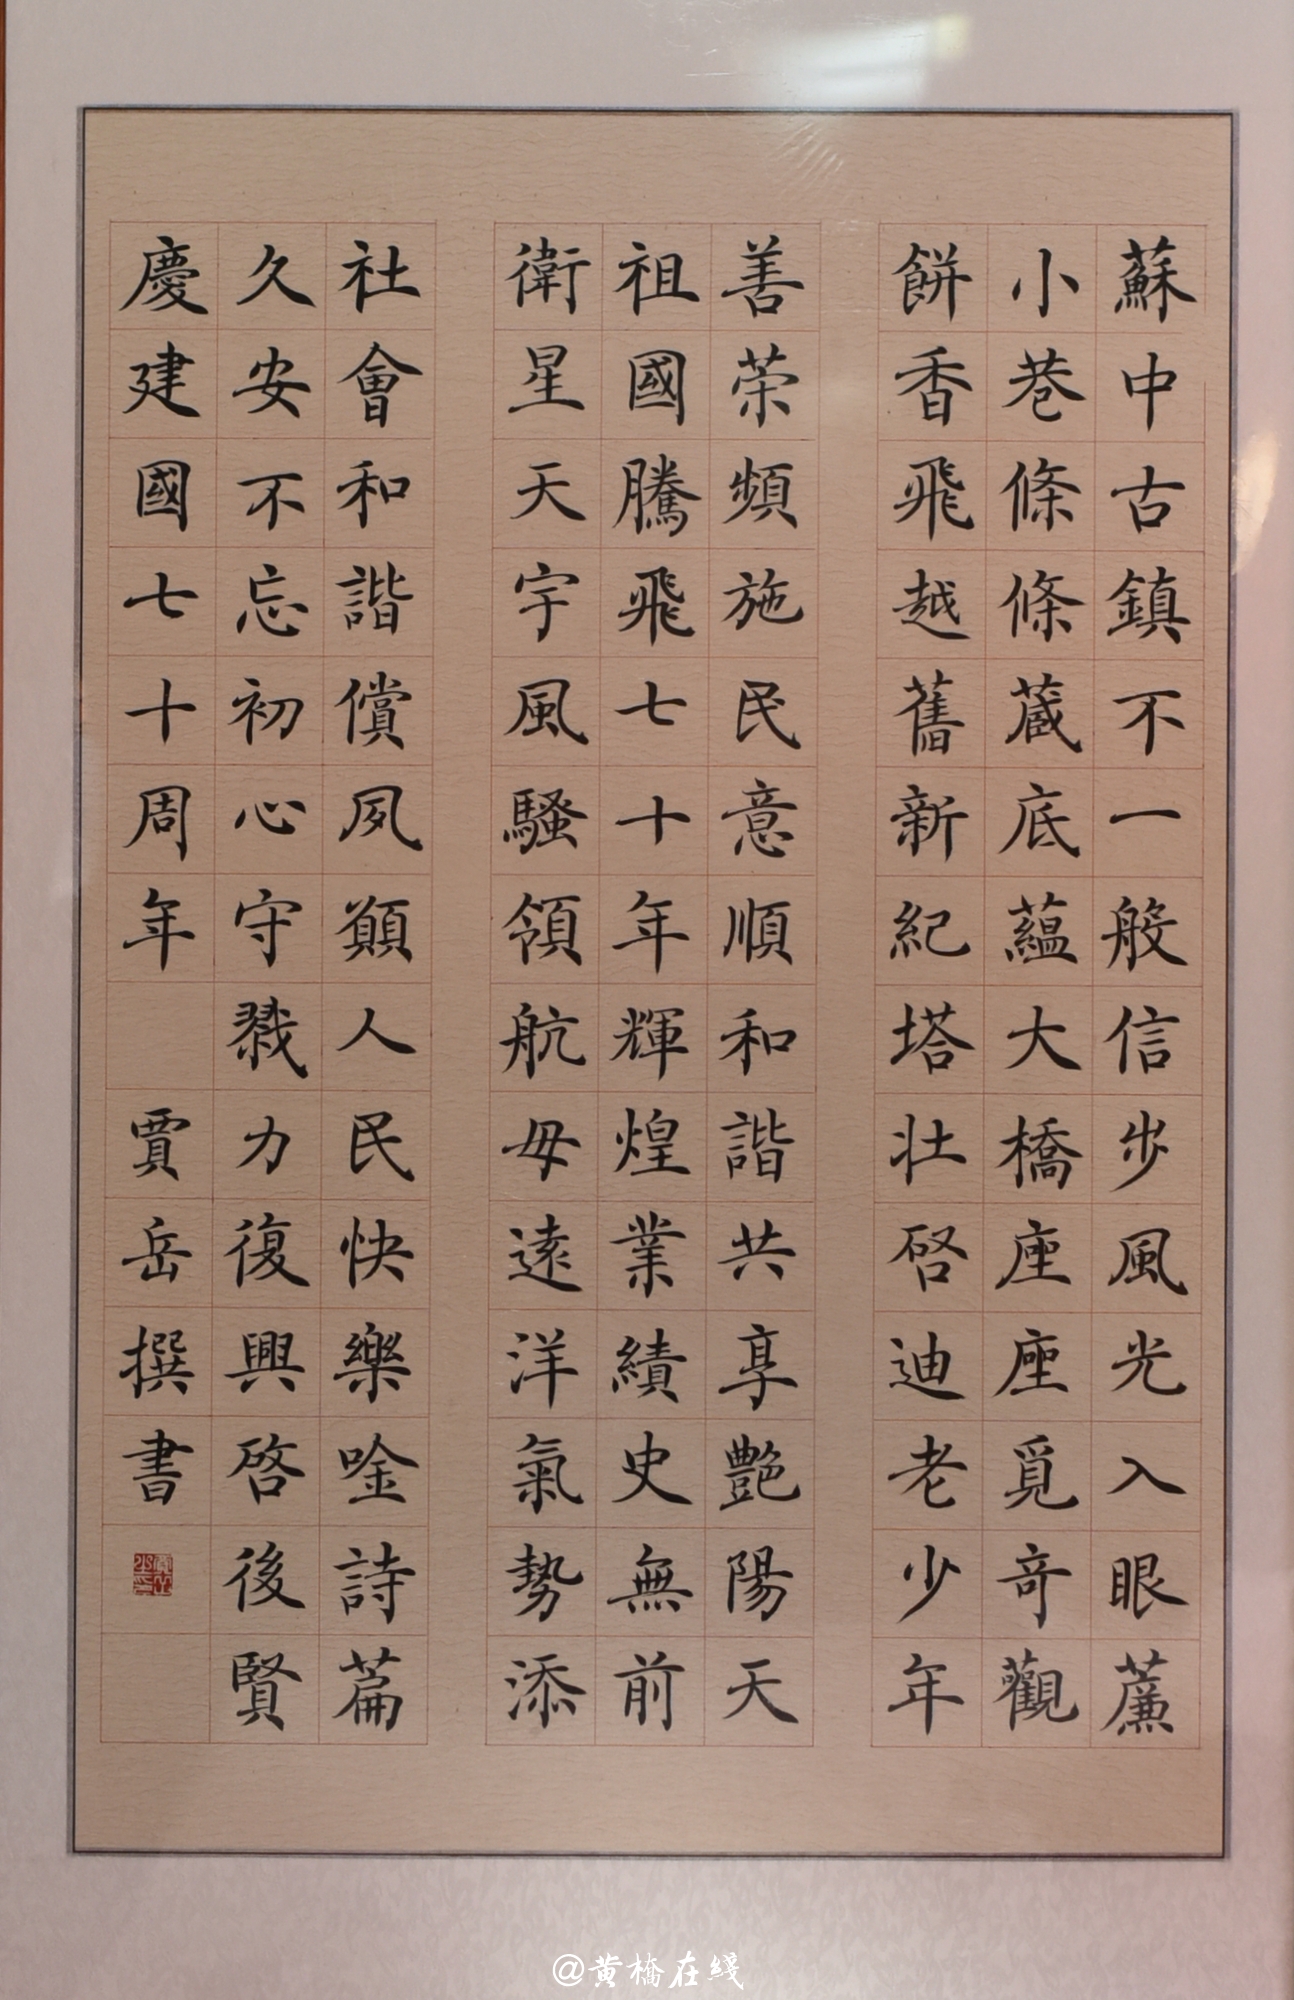 蘇中古鎮不一般信步風光入眼蓆
小巷條條藏底蘊大橋座座覓奇觀
餅香飛越舊新紀塔壯啓迪老少年
善荣頻施民意順和諧共享艷陽天
祖國騰飛七十年輝煌業績史無前
衛星天宇風騷領航母遠洋氣勢添
社會和諧償夙願人民快樂唫詩篇
久安不忘初心守戮力復興啓後賢
慶建國七十周年 賈岳撰書
@黄橋在綫